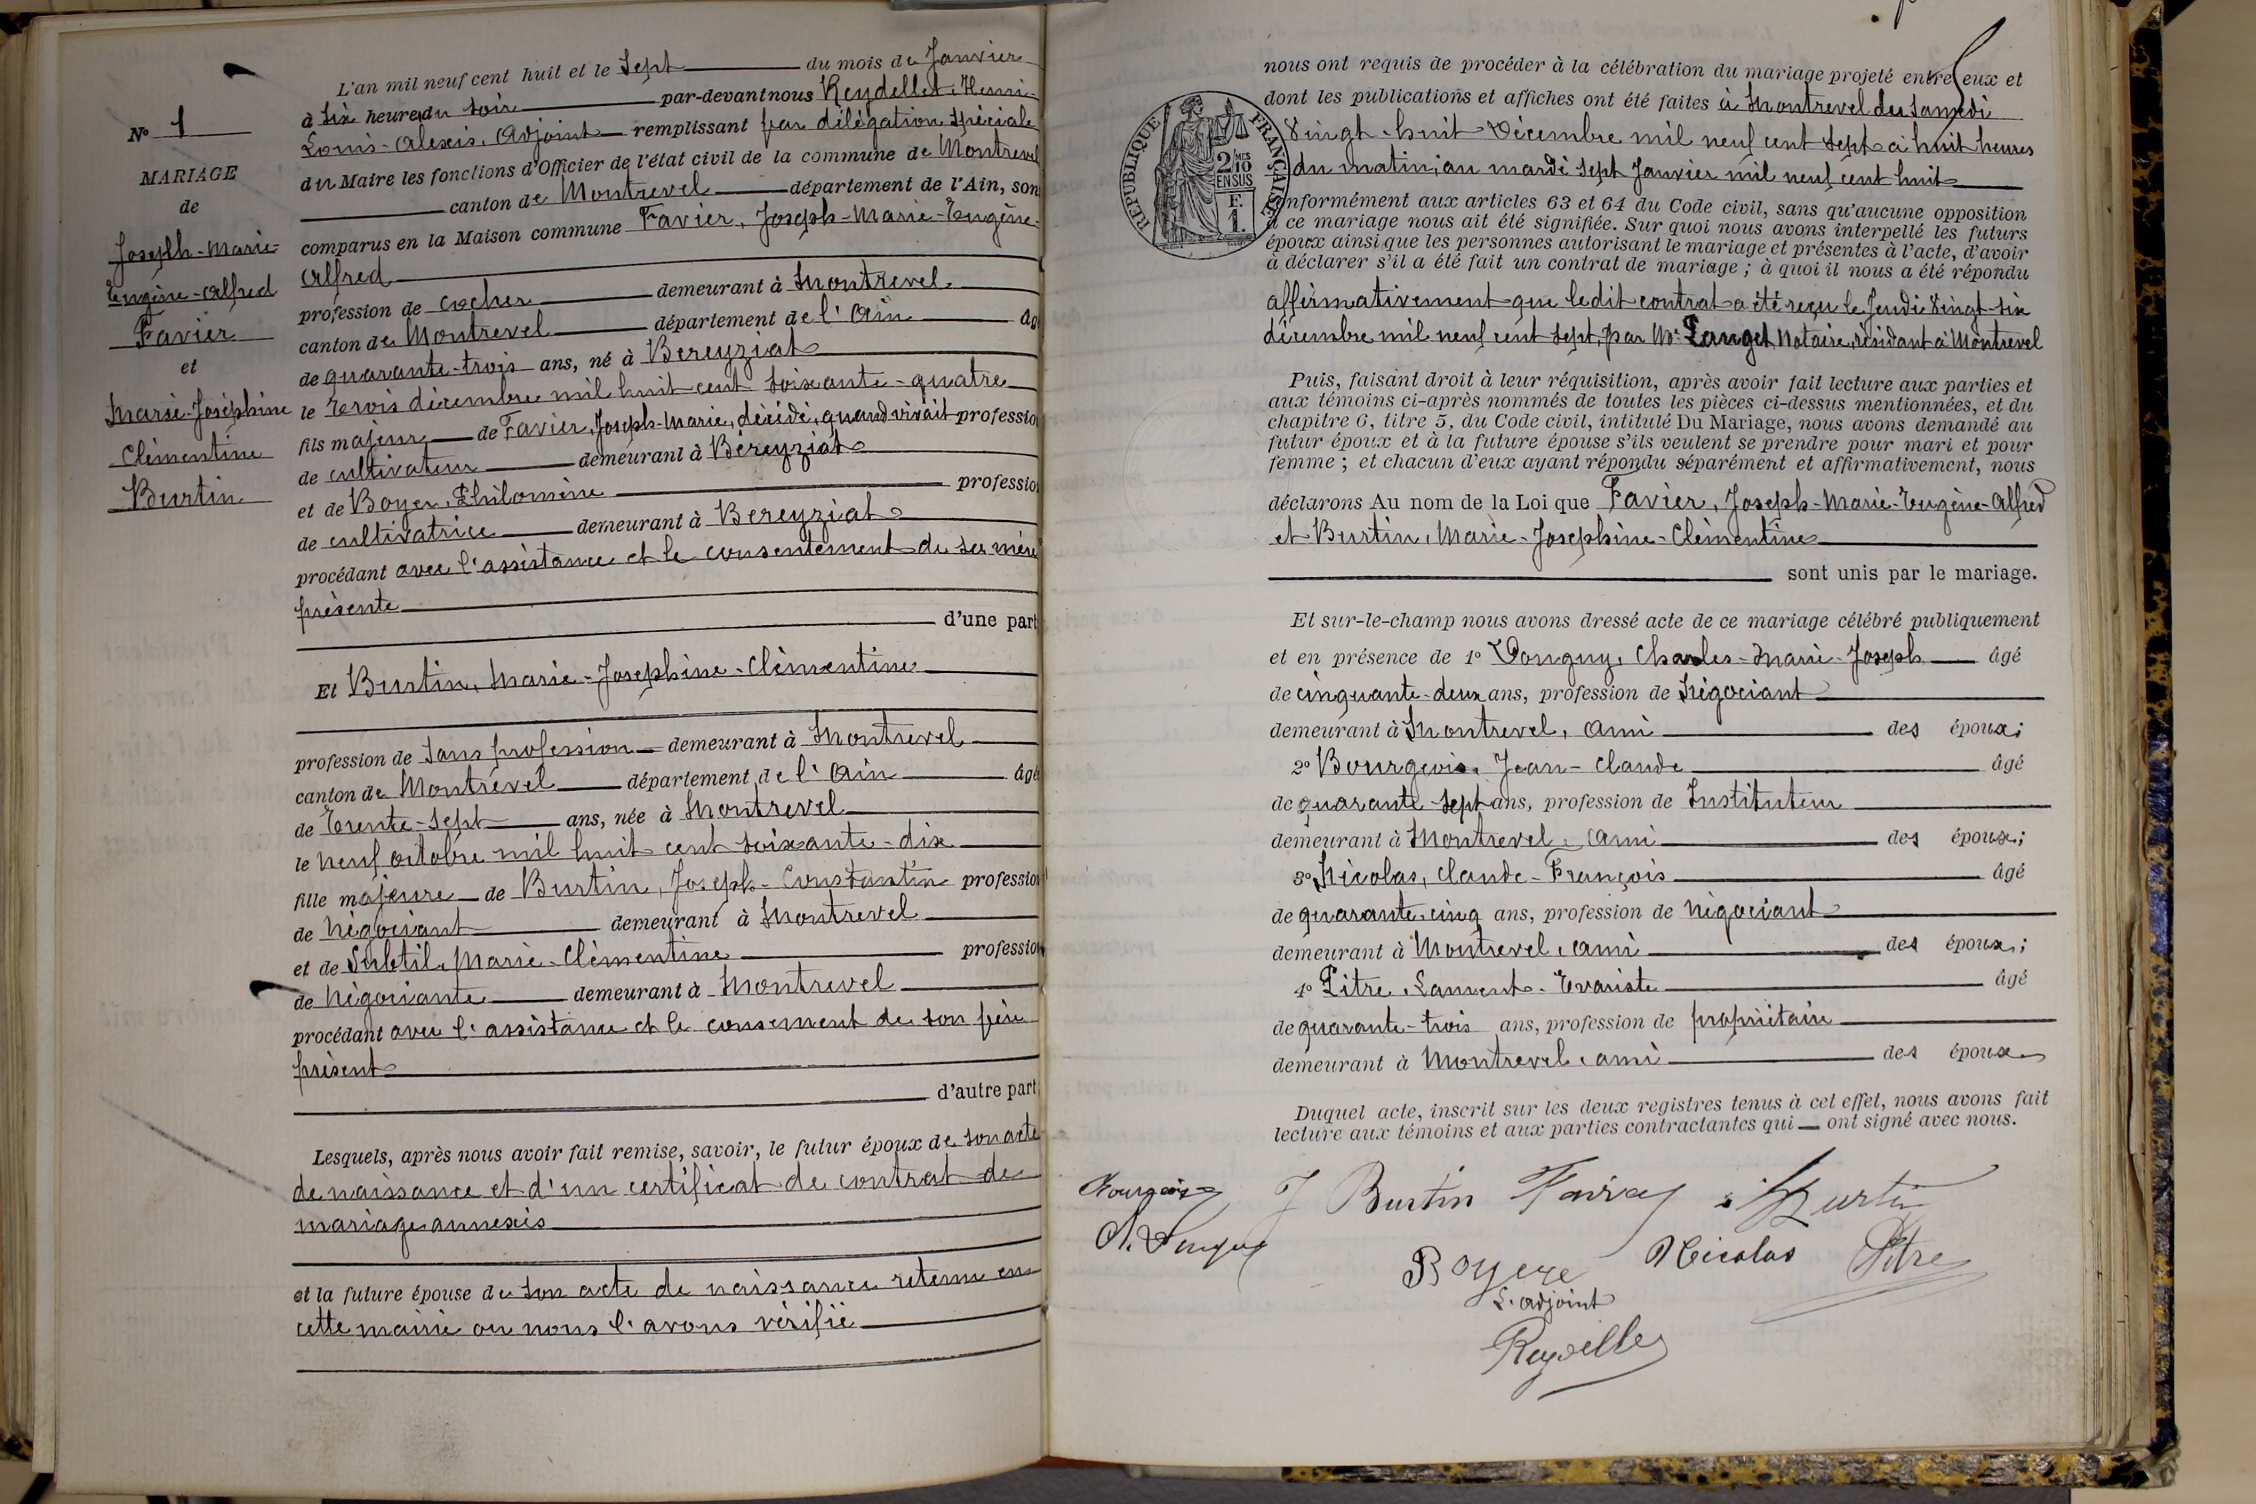 L'an mil neuf cent huit et le sept du mois de Janvier
à six heures du soir par-devant nous Reydellet, Henri-
Louis-Alexis, Adjoint remplissant par délégation spéciale
du Maire les fonctions d'Officier de l'état civil de la commune de Montrevel
canton de Montrevel département de l'Ain, son
comparus en la Maison commune Favier, Joseph-Marie-Eugène-
Alfred
profession de cocher demeurant à Montrevel
canton de Montrevel département de l'Ain âgé
de quarante-trois ans, né à Bereyziat
le trois décembre mil huit cent soixante-quatre
fils majeur de Favier, Joseph-Marie, décédé, quand vivait profession
de cultivateur demeurant à Béreyziat
et de Boyer, Philomène profession
de cultivatrice demeurant à Bereyziat
procédant avec l'assistance et le consentement de sa mère
présente
d'une part
Et Burtin, Marie-Josephine-Clémentine
profession de sans profession demeurant à Montrevel
canton de Montrevel département de l'Ain âgé
de trente-sept ans, née à Montrevel
le neuf octobre mil huit cent soixante-dix
fille majeure de Burtin, Joseph-Constantin profession
de négociant demeurant à Montrevel
et de Subtil, Marie-Clémentine profession
de négociante demeurant à Montrevel
procédant avec l'assistance et le consement de son père
présent
d'autre part;
Lesquels, après nous avoir fait remise, savoir, le futur époux de son acte
de naissance et d'un certificat de contrat de
mariage annexés
et la future épouse de son acte de naissance retenu en
cette mairie ou nous l'avons vérifié
N° 1
MARIAGE
de
Joseph-Marie-
Eugène-Alfred
Favier
et
Marie-Joséphine
Clémentine
Burtin
nous ont requis de procéder à la célébration du mariage projeté entre eux et
dont les publications et affiches ont été faites à Montrevel du Samedi
vingt-huit Décembre mil neuf cent sept à huit heures
du matin, au mardi sept Janvier mil neuf cent huit
conformément aux articles 63 et 64 du Code civil, sans qu'aucune opposition
à ce mariage nous ait été signifiée. Sur quoi nous avons interpellé les futurs
époux ainsi que les personnes autorisant le mariage et présentes à l'acte, d'avoir
à déclarer s'il a été fait un contrat de mariage ; à quoi il nous a été répondu
affirmativement que ledit contrat a été reçu le Jeudi vingt-six
décembre mil neuf cent sept, par Me Panget, Notaire, résidant à Montrevel
Puis, faisant droit à leur réquisition, après avoir fait lecture aux parties et
aux témoins ci-après nommés de toutes les pièces ci-dessus mentionnées, et du
chapitre 6, titre 5, du Code civil, intitulé Du Mariage, nous avons demandé au
futur époux et à la future épouse s'ils veulent se prendre pour mari et pour
femme ; et chacun d'eux ayant répondu séparément et affirmativement, nous
déclarons Au nom de la Loi que Favier, Joseph-Marie-Eugène-Alfred
et Burtin, Marie-Josephine-Clémentine
sont unis par le mariage.
Et sur-le-champ nous avons dressé acte de ce mariage célébré publiquement
et en présence de 1° Donguy, Charles-Marie-Joseph âgé
de cinquante-deux ans, profession de Négociant
demeurant à Montrevel, ami des époux;
2° Bourgeois, Jean-Claude âgé
de quarante-sept ans, profession de Instituteur
demeurant à Montrevel, ami des époux;
3° Nicolas, Claude-François âgé
de quarante-cinq ans, profession de négociant
demeurant à Montrevel, ami des époux;
4° Pitre, Laurent-Evariste âgé
de quarante-trois ans, profession de propriétaire
demeurant à Montrevel, ami des époux
Duquel acte, inscrit sur les deux registres tenus à cet effet, nous avons fait
lecture aux témoins et aux parties contractantes qui ont signé avec nous.
Bourgeois J Burtin Favier Burtin
Donguy Boyer Nicolas Pitre
L'adjoint
Reydellet
RÉPUBLIQUE FRANÇAISE
2 MES 10
EN SUS
F.
1.